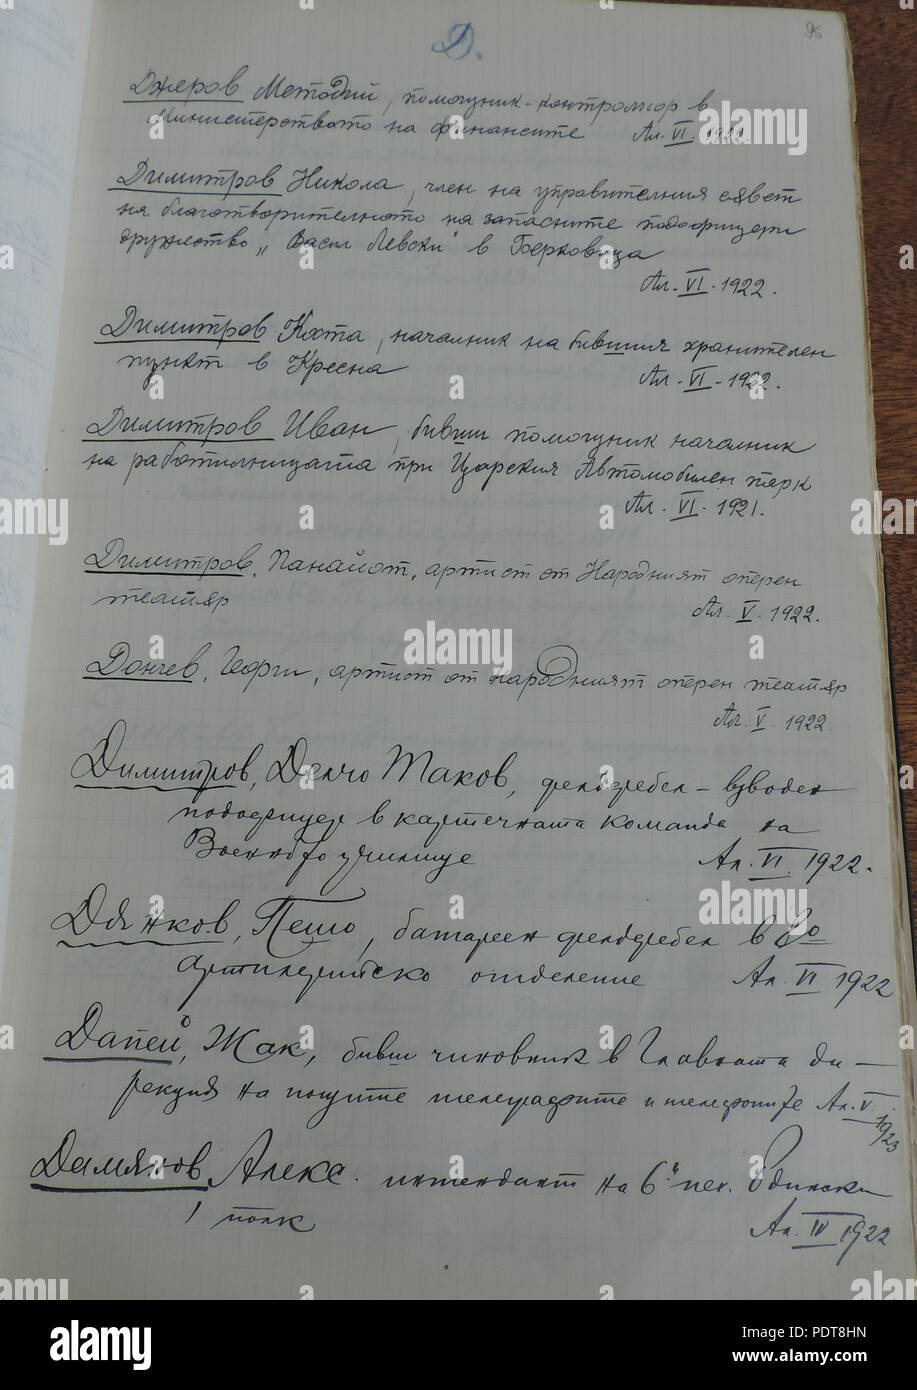 96
Д.
Джеров Методий, помощник-контрольор в
Министерството на финансите Ал. VI. 1922.
Димитров Никола, член на управителния съвет
на благотворителното на запасните подофицери
дружество „Васил Левски" в Берковица
Ал. VI. 1922.
Димитров Коста, началник на бившия хранителен
пункт в Кресна Ал. VI. 1922.
Димитров Иван, бивш помощник началник
на работилницата при Царския Автомобилен парк
Ал. VI. 1921.
Димитров, Панайот, артист от Народният оперен
театър Ал. V. 1922.
Дончев, Георги, артист от народният оперен театър
Ал. V. 1922.
Димитров, Делчо Таков, фелдфебел – взводен
подофицер в картечната команда на
Военното училище Ал. VI. 1922.
Дянков, Пешо, батареен фелдфебел в во
артилерийско отделение Ал. VI 1922
Дапей, Жак, бивш чиновник в Главната ди–
рекция на пощите телеграфите и телефоните Ал. V 1923
Дамянов Алекс. интендант на 6й пех. Бдински
полк Ал. IV 1922
alamy
Image ID: PDT8HN
www.alamy.com